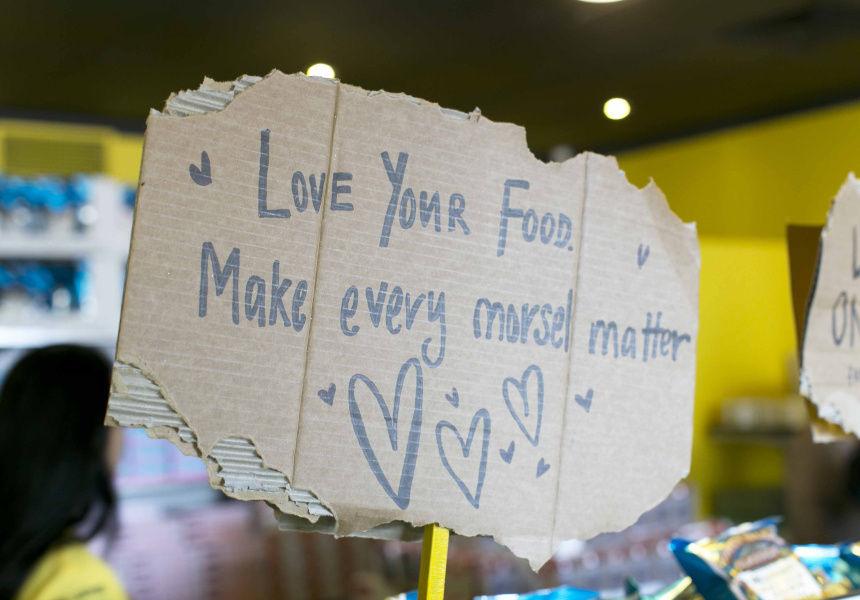 Love Your Food.
Make every morsel matter